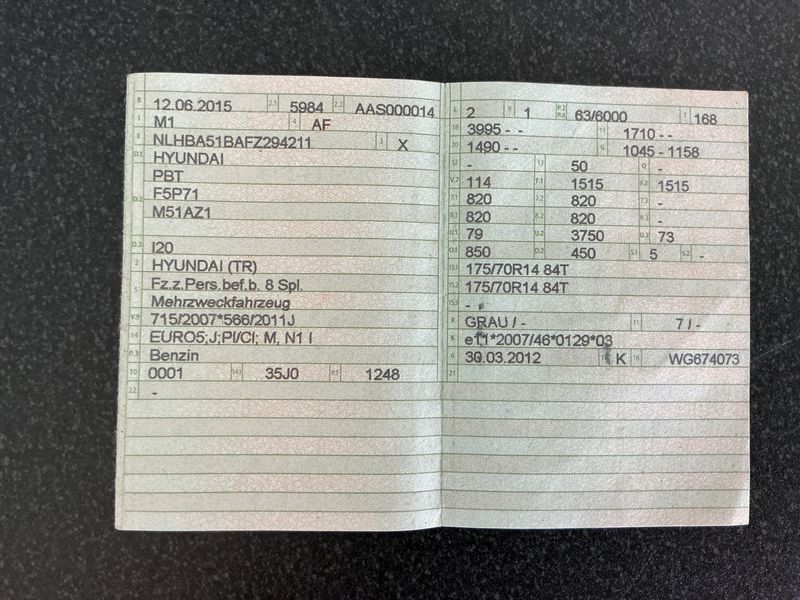 B 12.06.2015 2.1 5984 2.2 AAS000014
J M1 4 AF
E NLHBA51BAFZ294211 3 X
D.1 HYUNDAI
PBT
D.2 F5P71
M51AZ1
D.3 I20
2 HYUNDAI (TR)
5 Fz.z.Pers.bef.b. 8 Spl.
Mehrzweckfahrzeug
V.9 715/2007*566/2011J
14 EURO5;J;PI/CI; M, N1 I
P.3 Benzin
10 0001 14.1 35J0 P.1 1248
22 -
L 2 9 1 P.2 P.4 63/6000 T 168
18 3995 - - 19 1710 - -
20 1490 - - G 1045 - 1158
12 - 13 50 Q -
V.7 114 F.1 1515 F.2 1515
7.1 820 7.2 820 7.3 -
8.1 820 8.2 820 8.3 -
U.1 79 U.2 3750 U.3 73
O.1 850 O.2 450 S.1 5 S.2 -
15.1 175/70R14 84T
15.2 175/70R14 84T
15.3 -
R GRAU / - 11 7 / -
K e11*2007/46*0129*03
6 30.03.2012 17 K 16 WG674073
21